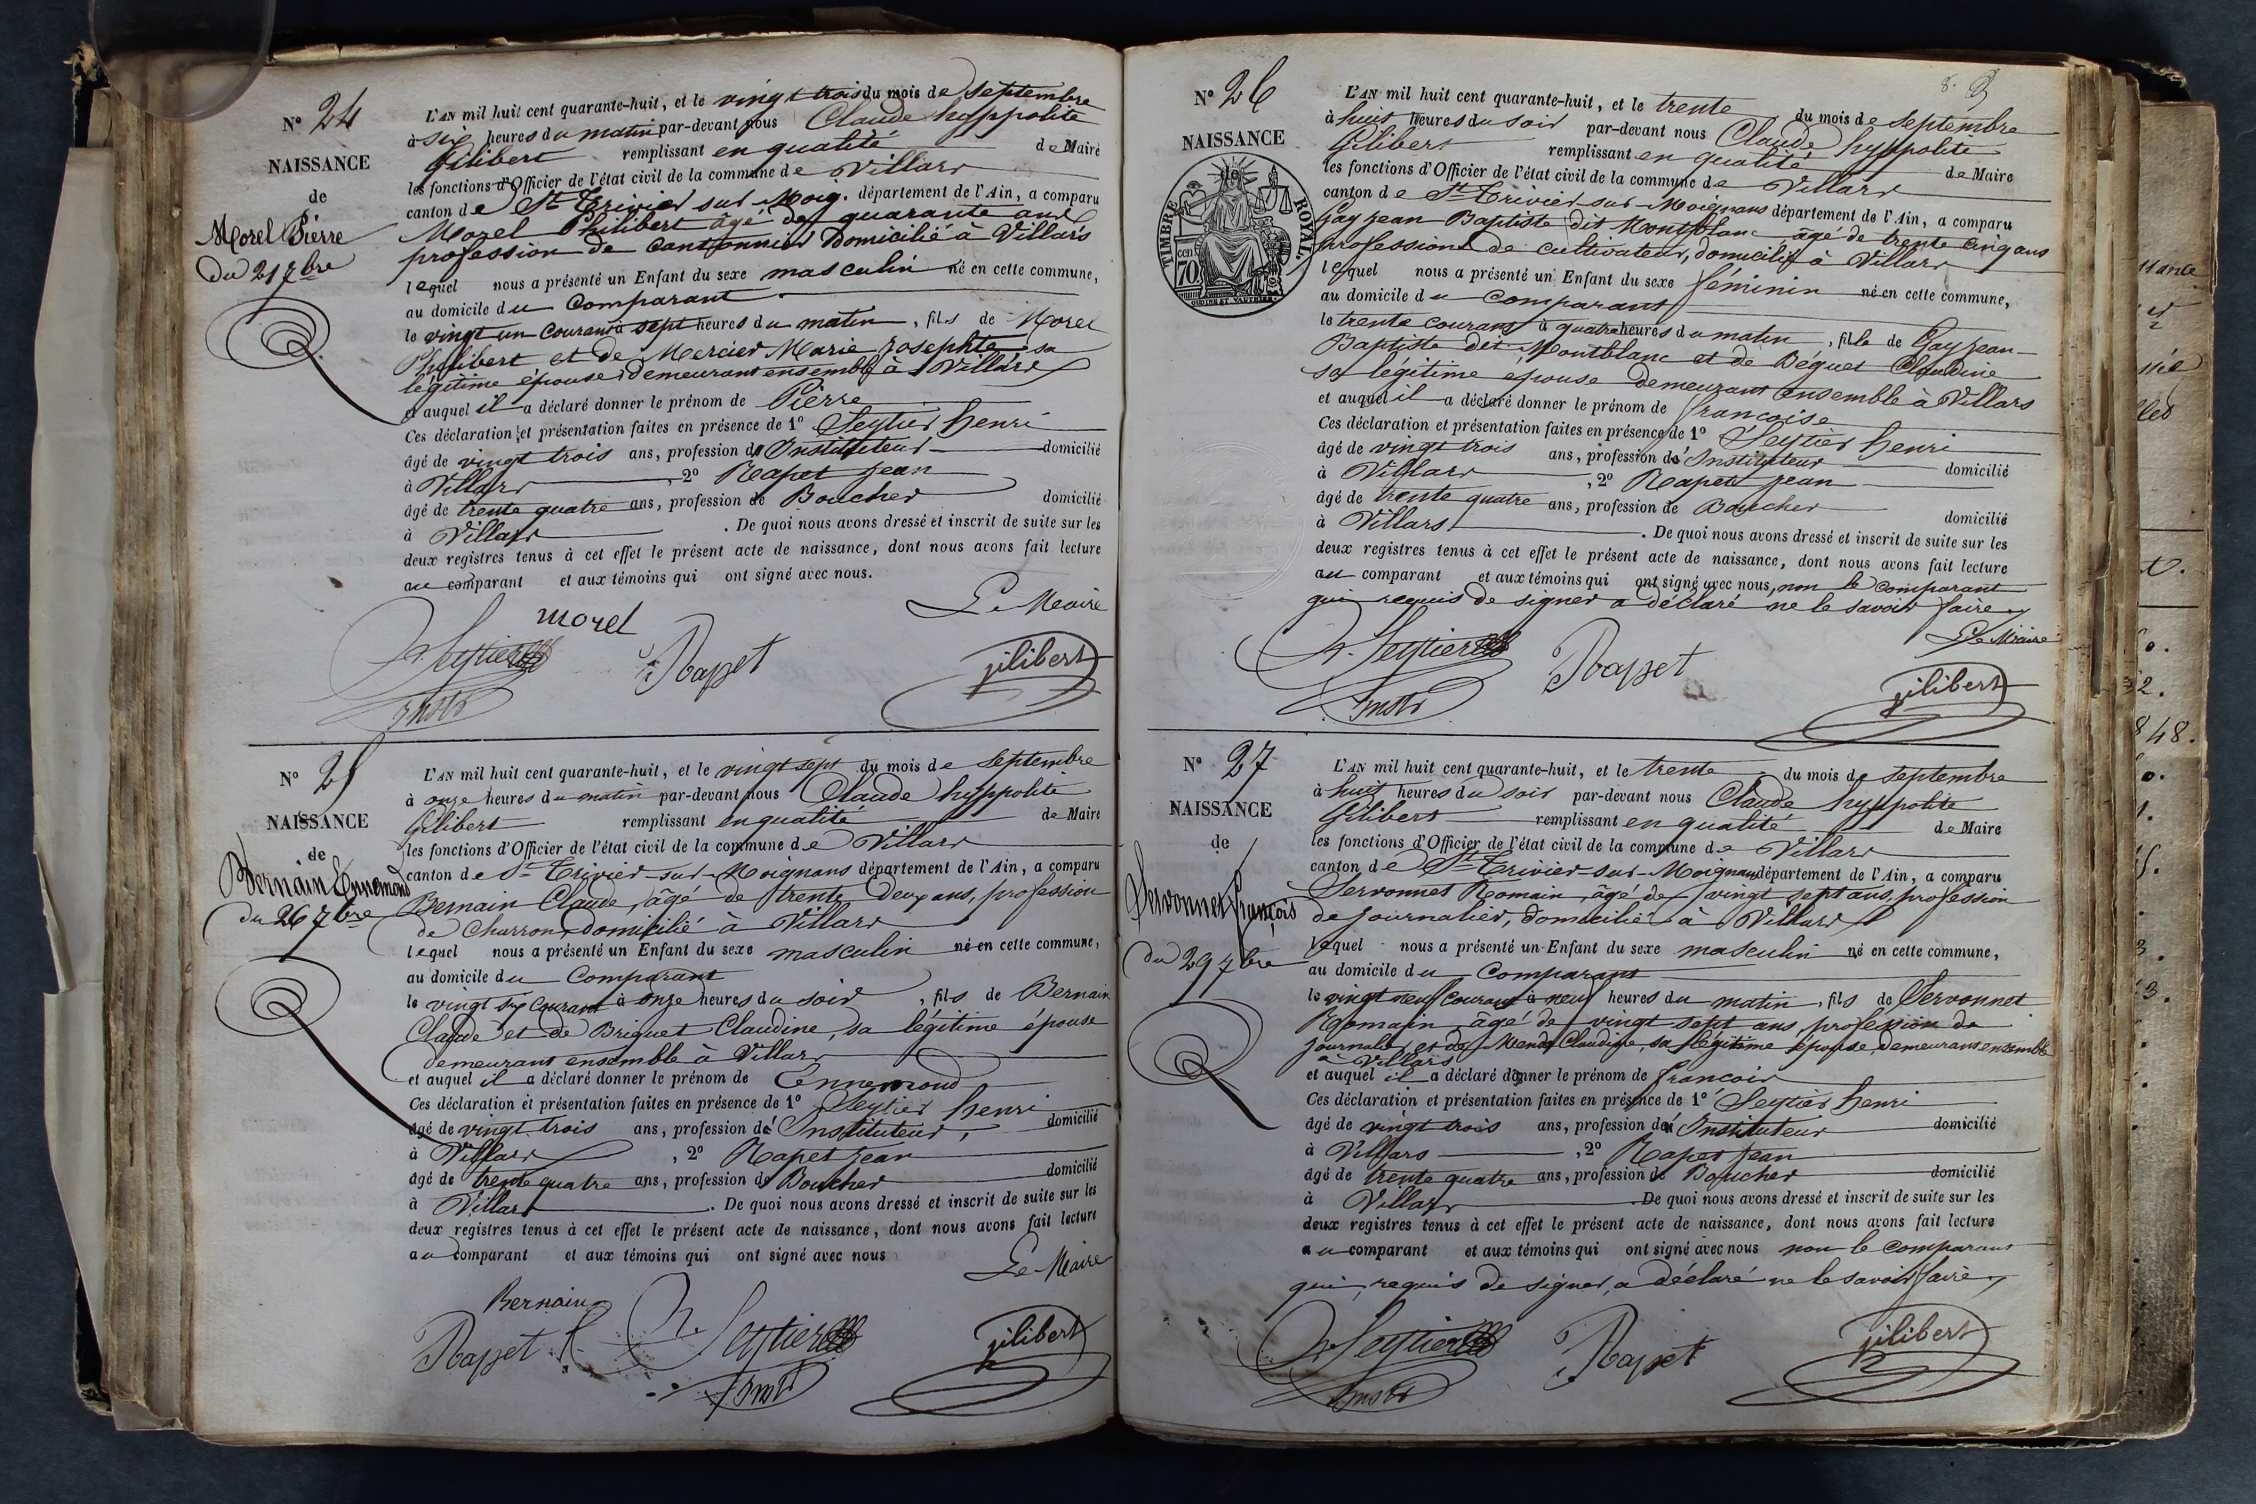 N° 24
NAISSANCE
de
Morel Pierre
du 21 7bre
L'AN mil huit cent quarante-huit, et le vingt trois du mois de Septembre
à six heures du matin par-devant nous Claude hyppolite
Gilibert remplissant en qualité de Maire
les fonctions d'Officier de l'état civil de la commune de Villars
canton de St Trivier sur Moig. département de l'Ain, a comparu
Morel Philibert âgé de quarante ans
profession de cantonnier domicilié à Villars
lequel nous a présenté un Enfant du sexe masculin né en cette commune,
au domicile du Comparant
le vingt un courant à sept heures du matin, fils de Morel
Philibert et de Mercier Marie Josephte sa
légitime épouse demeurant ensemble à Villars
et auquel il a déclaré donner le prénom de Pierre
Ces déclaration et présentation faites en présence de 1° Seytier henri
âgé de vingt trois ans, profession d'Instituteur domicilié
à Villars, 2° Rapet jean
âgé de trente quatre ans, profession de Boucher domicilié
à Villars. De quoi nous avons dressé et inscrit de suite sur les
deux registres tenus à cet effet le présent acte de naissance, dont nous avons fait lecture
au comparant et aux témoins qui ont signé avec nous.
Le Maire
morel
h. Seytier
Rappet
gilibert
Instr
N° 25
NAISSANCE
de
Bernain Ennemond
du 26 7bre
L'AN mil huit cent quarante-huit, et le vingt sept du mois de Septembre
à onze heures du matin par-devant nous Claude hyppolite
Gilibert remplissant en qualité de Maire
les fonctions d'Officier de l'état civil de la commune de Villars
canton de St Trivier-sur-Moignans département de l'Ain, a comparu
Bernain Claude, âgé de trente deux ans, profession
de Charron, domicilié à Villars
lequel nous a présenté un Enfant du sexe masculin né en cette commune,
au domicile du Comparant
le vingt six Courant à onze heures du soir, fils de Bernain
Claude et de Briguet Claudine, sa légitime épouse
demeurant ensemble à Villars
et auquel il a déclaré donner le prénom de Ennemond
Ces déclaration et présentation faites en présence de 1° Seytier henri
âgé de vingt trois ans, profession d'Instituteur, domicilié
à Villars, 2° Rapet jean
âgé de trente quatre ans, profession de Boucher domicilié
à Villars. De quoi nous avons dressé et inscrit de suite sur les
deux registres tenus à cet effet le présent acte de naissance, dont nous avons fait lecture
au comparant et aux témoins qui ont signé avec nous
Le Maire
Bernain
Rappet
h. Seytier
gilibert
Instr
8.
N° 26
NAISSANCE
de
TIMBRE ROYAL
70 cen
L'AN mil huit cent quarante-huit, et le trente du mois de Septembre
à huit heures du soir par-devant nous Claude hyppolite
Gilibert remplissant en qualité de Maire
les fonctions d'Officier de l'état civil de la commune de Villars
canton de St Trivier-sur-Moignans département de l'Ain, a comparu
Gay jean Baptiste dit Montblanc âgé de trente cinq ans
profession de cultivateur, domicilié à Villars
lequel nous a présenté un Enfant du sexe féminin né en cette commune,
au domicile du comparant
le trente courant à quatre heures du matin, fille de Gay jean-
Baptiste dit Montblanc et de Béguet Claudine
sa légitime épouse demeurant ensemble à Villars
et auquel il a déclaré donner le prénom de françoise
Ces déclaration et présentation faites en présence de 1° Seytier henri
âgé de vingt trois ans, profession d'Instituteur domicilié
à Villars, 2° Rapet jean
âgé de trente quatre ans, profession de Boucher domicilié
à Villars. De quoi nous avons dressé et inscrit de suite sur les
deux registres tenus à cet effet le présent acte de naissance, dont nous avons fait lecture
au comparant et aux témoins qui ont signé avec nous, non le comparant
qui requis de signer a déclaré ne le savoir faire
Le Maire
h. Seytier
Rappet
gilibert
Instr
N° 27
NAISSANCE
de
Servonnet françois
du 29 7bre
L'AN mil huit cent quarante-huit, et le trente du mois de septembre
à huit heures du soir par-devant nous Claude hyppolite
Gilibert remplissant en qualité de Maire
les fonctions d'Officier de l'état civil de la commune de Villars
canton de St Trivier-sur-Moignans département de l'Ain, a comparu
Servonnet Romain, âgé de vingt sept ans, profession
de journalier, domicilié à Villars
lequel nous a présenté un Enfant du sexe masculin né en cette commune,
au domicile du Comparant
le vingt neuf courant à neuf heures du matin, fils de Servonnet
Romain âgé de vingt sept ans profession de
journalier et de Claudine, sa légitime épouse demeurant ensemble
à Villars
et auquel il a déclaré donner le prénom de françois
Ces déclaration et présentation faites en présence de 1° Seytier henri
âgé de vingt trois ans, profession d'Instituteur domicilié
à Villars, 2° Rapet jean
âgé de trente quatre ans, profession de Boucher domicilié
à Villars. De quoi nous avons dressé et inscrit de suite sur les
deux registres tenus à cet effet le présent acte de naissance, dont nous avons fait lecture
au comparant et aux témoins qui ont signé avec nous non le comparant
qui, requis de signer, a déclaré ne le savoir faire
h. Seytier
Rappet
gilibert
Instr